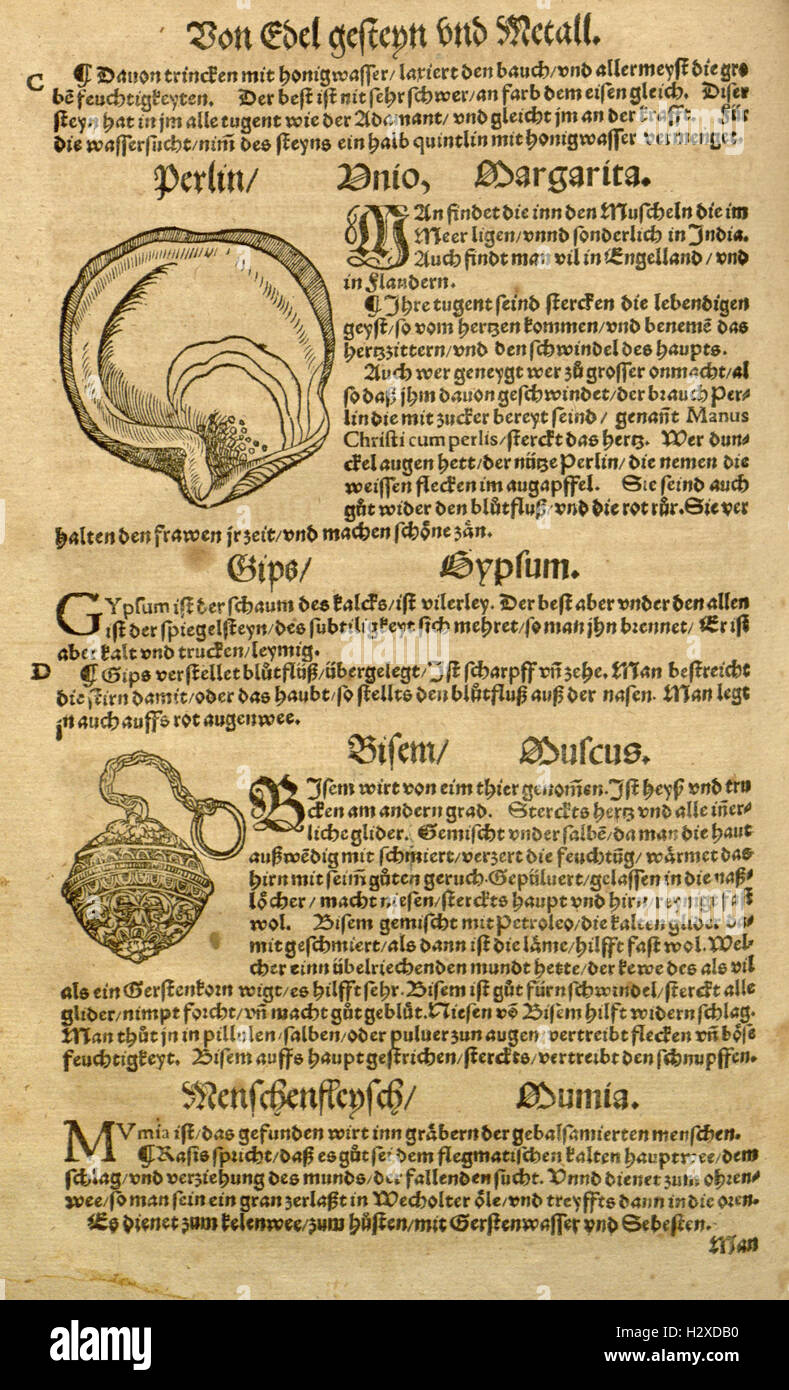 Von Edel gesteyn vnd Metall.
C ¶ Dauon trincken mit honigwasser/ laxiert den bauch/vnd allermeyst die gro⸗
bẽ feuchtigkeyten. Der best ist nit sehr schwer/an farb dem eisen gleich. Diser
steyn hat in jm alle tugent wie der Adamant/ vnd gleicht jm an der krafft. Für
die wassersucht/nim̃ des steyns ein halb quintlin mit honigwasser vermenget.
Perlin/ Vnio, Margarita.
MAn findet die inn den Muscheln die im
Meer ligen/vnnd sonderlich in India.
Auch findt man vil in Engelland/vnd
in Flandern.
¶ Ihre tugent seind stercken die lebendigen
geyst/so vom hertzen kommen/vnd benemẽ das
hertzzittern/vnd den schwindel des haupts.
Auch wer geneygt wer zů grosser onmacht/al
so daß jhm dauon geschwindet/der brauch Per⸗
lin die mit zucker bereyt seind/ genañt Manus
Christi cum perlis/sterckt das hertz. Wer dun⸗
ckel augen hett/der nütze Perlin/ die nemen die
weissen flecken im augapffel. Sie seind auch
gůt wider den blůtfluß/vnd die rot růr. Sie ver
halten den frawen jr zeit/vnd machen schöne zän.
Gips/ Gypsum.
GYpsum ist der schaum des kalcks/ist vilerley. Der best aber vnder den allen
ist der spiegelsteyn/des subtiligkeyt sich mehret/so man jhn brennet/ Er ist
aber kalt vnd trucken/leymig.
D ¶ Gips verstellet blůtflüß/übergelegt/Ist scharpff vñ zehe. Man bestreicht
die stirn damit/oder das haubt/so stellts den blůtfluß auß der nasen. Man legt
jn auch auffs rot augenwee.
Bisem/ Muscus.
BIsem wirt von eim thier genom̃en. Ist heyß vnd tru
cken am andern grad. Sterckts hertz vnd alle iñer⸗
liche glider. Gemischt vnder salbẽ/da man die haut
außwẽdig mit schmiert/verzert die feuchtũg/ wärmet das
hirn mit seim̃ gůten geruch. Gepüluert/gelassen in die naß⸗
löcher/ macht niesen/sterckts haupt vnd hirn
wol. Bisem gemischt mit Petroleo/die kalten glider da⸗
mit geschmiert/als dann ist die läme/hilfft fast wol. Wel⸗
cher einn übelriechenden mundt hette/der kewe des als vil
als ein Gerstenkorn wigt/es hilfft sehr. Bisem ist gůt fürn schwindel/sterckt alle
glider/nimpt forcht/vñ macht gůt geblůt. Niesen võ Bisem hilft widern schlag.
Man thůt jn in pillulen/salben/oder puluer zun augen/vertreibt flecken vñ böse
feuchtigkeyt. Bisem auffs haupt gestrichen/sterckts/vertreibt den schnupffen.
Menschenfleysch/ Mumia.
MVmia ist/das gefunden wirt inn gräbern der gebalsamierten menschen.
¶ Rasis spricht/daß es gůt sei dem flegmatischen kalten hauptwee/dem
schlag/vnd verziehung des munds/der fallenden sucht. Vnnd dienet zum ohren⸗
wee/so man sein ein gran zerlaßt in Wecholter öle/vnd treyffts dann in die oren.
Es dienet zum kelenwee/zum hůsten/mit Gerstenwasser vnd Sebesten.
Man
alamy
alamy
Image ID: H2XDB0
www.alamy.com